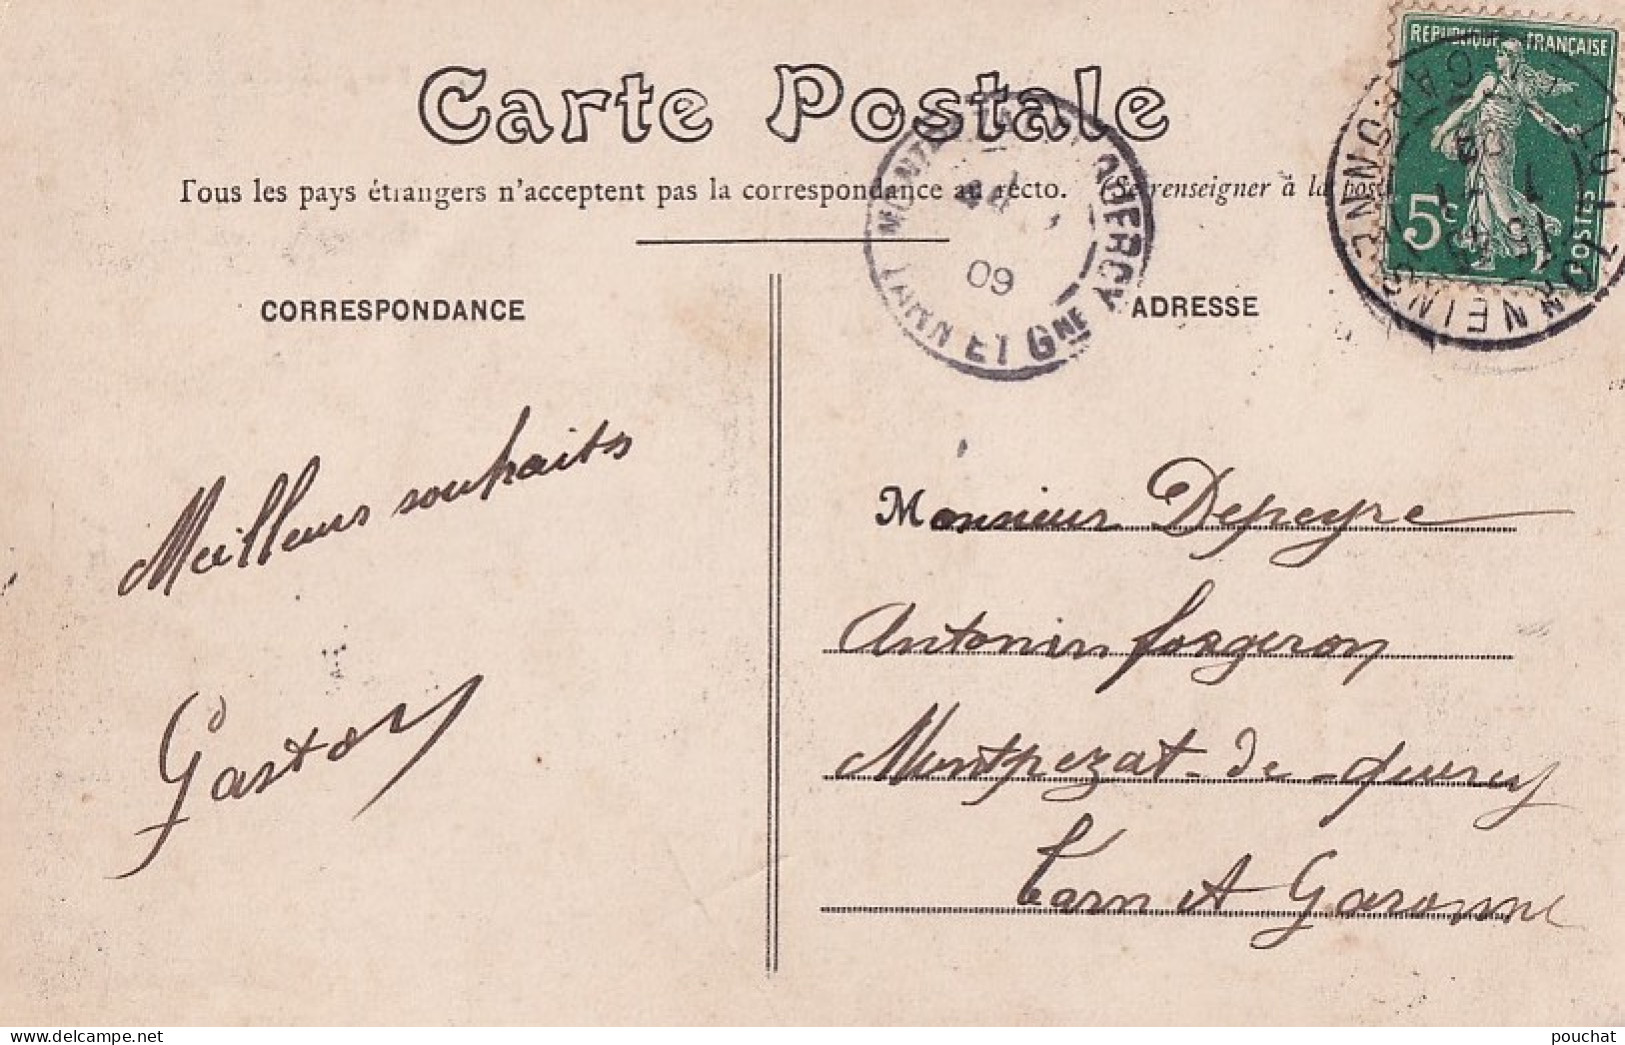 Carte Postale
Tous les pays étrangers n'acceptent pas la correspondance au recto. (Se renseigner à la pos
CORRESPONDANCE
ADRESSE
REPUBLIQUE FRANÇAISE
5c
POSTES
QUERCY
09
TARN ET GNE
Meilleurs souhaits
Gaston
Monsieur Depeyre
Antonin forgeron
Montpezat-de-Quercy
Tarn et Garonne
pouchat